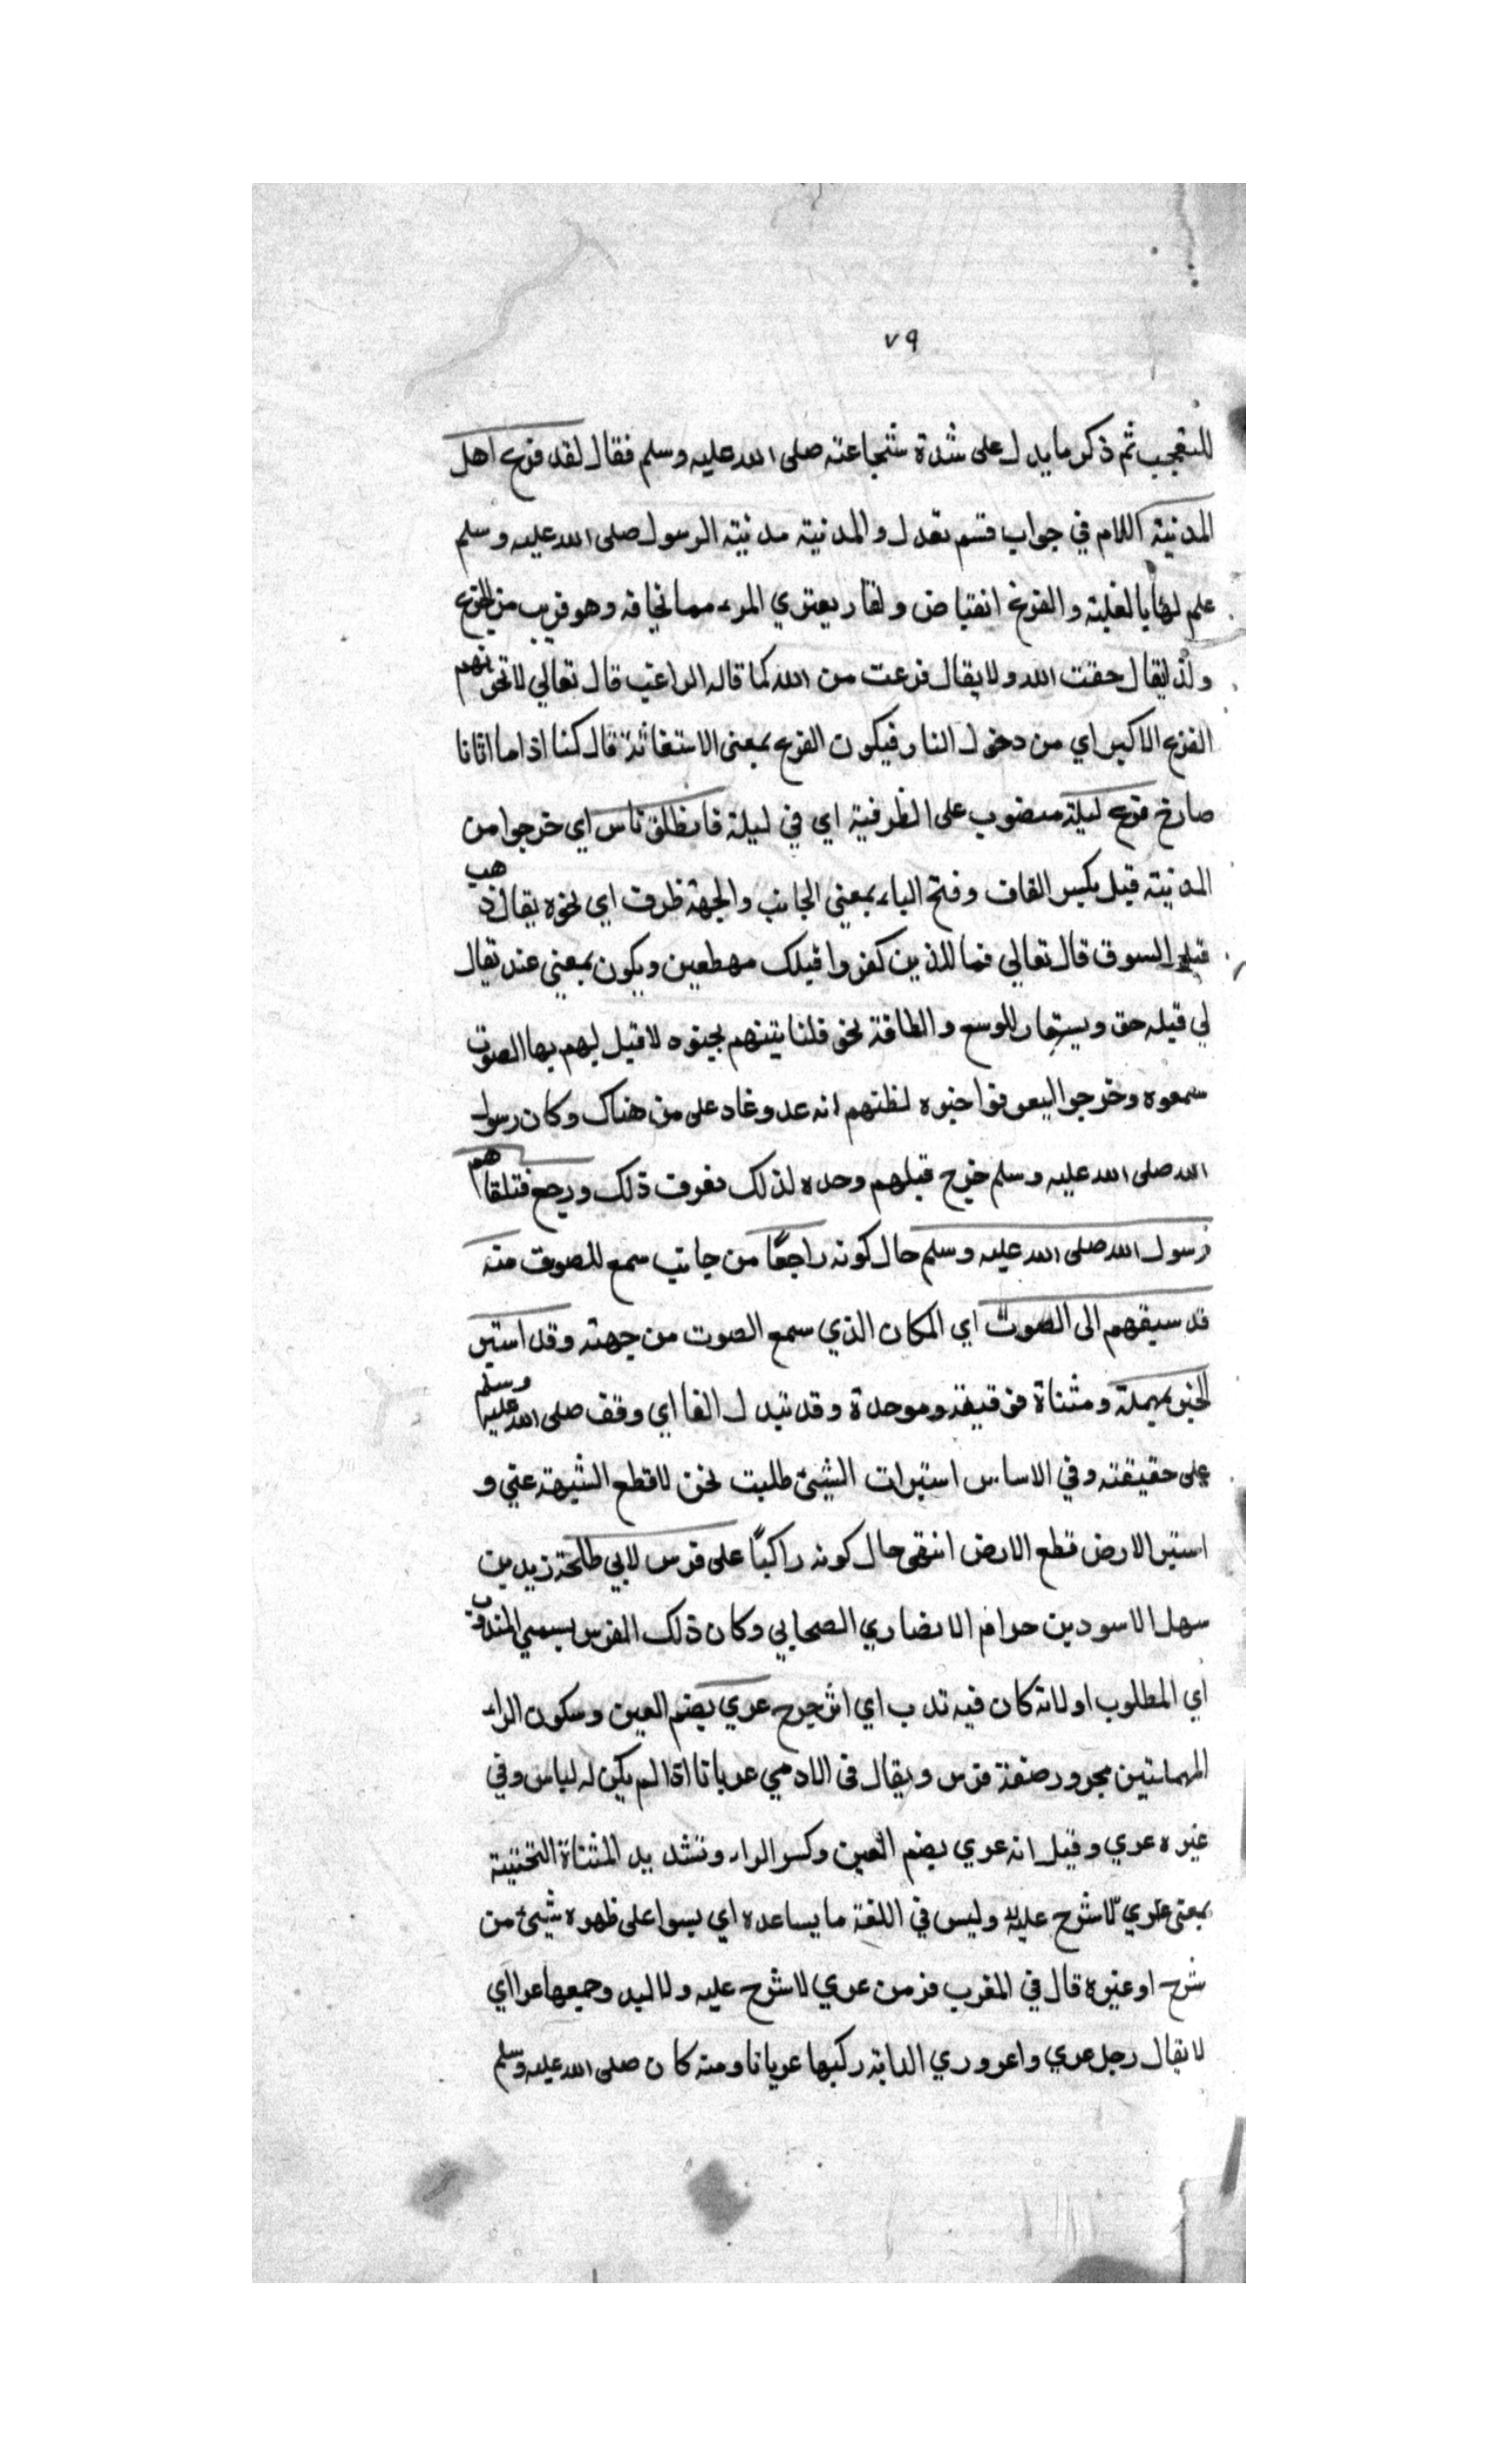 ٧٩
للتعجب ثم ذكر ما يدل على شدة شجاعته صلى الله عليه وسلم فقال لقد فزع اهل
المدنية اللام في جواب قسم تقدل والمدنية مدنية الرسول صلى الله عليه وسلم
علم لها بالغلبة والفزع انقباض ونفار يعتري المرء مما نخافه وهو قريب من الجزع
ولذ ليقال خفت الله ولا يقال فزعت من الله كما قاله الراغب قال تعالي لا تحزنهم
الفزع الاكبر اي من دخول النار فيكون الفزع بمعنى الاستغاثة قال كنا اذا ما اتانا
صارخ فزع ليلة منصوب على الظرفية اي في ليلة فانطلق ناس اي خرجوا من
المدنية قبل بكسر القاف وفتح الباء بمعني الجانب والجهة ظرف اي نحوه يقال ذهب
قبل السوق قال تعالي فما للذين كفروا قبلك مهطعين ويكون بمعني عند يقال
لي قبله حق ويستعار للوسع والطاقة نحو فلنا يتنهم بجنوه لا قبل لهم بها الصوت
سمعوه وخرجوا ليعرفوا خبره لظنهم انه عدو غاد على من هناك وكان رسول
الله صلى الله عليه وسلم خرج قبلهم وحده لذلك فعرف ذلك ورجع فتلقاهم
رسول الله صلى الله عليه وسلم حال كونه راجعًا من جانب سمع للصوت منه
قد سبقهم الى الصوت اي المكان الذي سمع الصوت من جهته وقد استبر
الخبر بمهملة ومثناة فوقية وموحدة وقد تبدل الفا اي وقف صلى الله عليه وسلم
على حقيقته وفي الاساس استبرات الشيئ طلبت نحن لاقطع الشبهة عني و
استبر الارض قطع الارض انتهى حال كونه راكبًا على فرس لابي طلحة زيد بن
سهل الاسود بن حرام الانصاري الصحابي وكان ذلك الفرس يسمي المندوب
اي المطلوب او لانه كان فيه ندب اي اثر جرح عري بضم العين وسكون الراء
المهملتين مجرور صفة فرس ويقال في الادمي عريانا اذا لم يكن له لباس وفي
غيره عري وقيل انه عري بضم العين وكسر الراء وتشديد المثناة التحتية
بمعنى عري لا شرح عليه وليس في اللغة ما يساعده اي يسوا على ظهره شيئ من
شرح او غيره قال في المغرب فرس عري لا شرح عليه ولا لبد وجمعها عرااي
لا يقال رجل عري واعروري الدابة ركبها عريانا ومنه كان صلى الله عليه وسلم